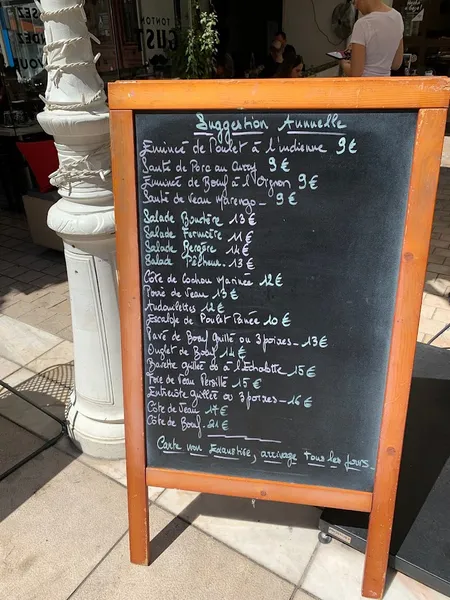 TONTON
Suggestion Annuelle
Emincé de Poulet à l'indienne 9€
Sauté de Porc au Curry 9€
Emincé de Bœuf à l'Oignon 9€
Sauté de Veau Marengo - 9€
Salade Bouchère 13€
Salade Fermière 11€
Salade Bergère 11€
Salade Pêcheur. 13€
Côte de Cochon Marinée 12€
Pavé de Veau 13€
Andouillettes 12€
Escalope de Poulet Panée 10€
Pavé de Bœuf Grillé ou 3 poivres - 13€
Onglet de Bœuf 14€
Bavette Grillée ou à l'Echalotte - 15€
Foie de Veau Persillé 15€
Entrecôte Grillée ou 3 poivres - 16€
Côte de Veau 17€
Côte de Bœuf 21€
Carte non Exhaustive, arrivage tous les jours.